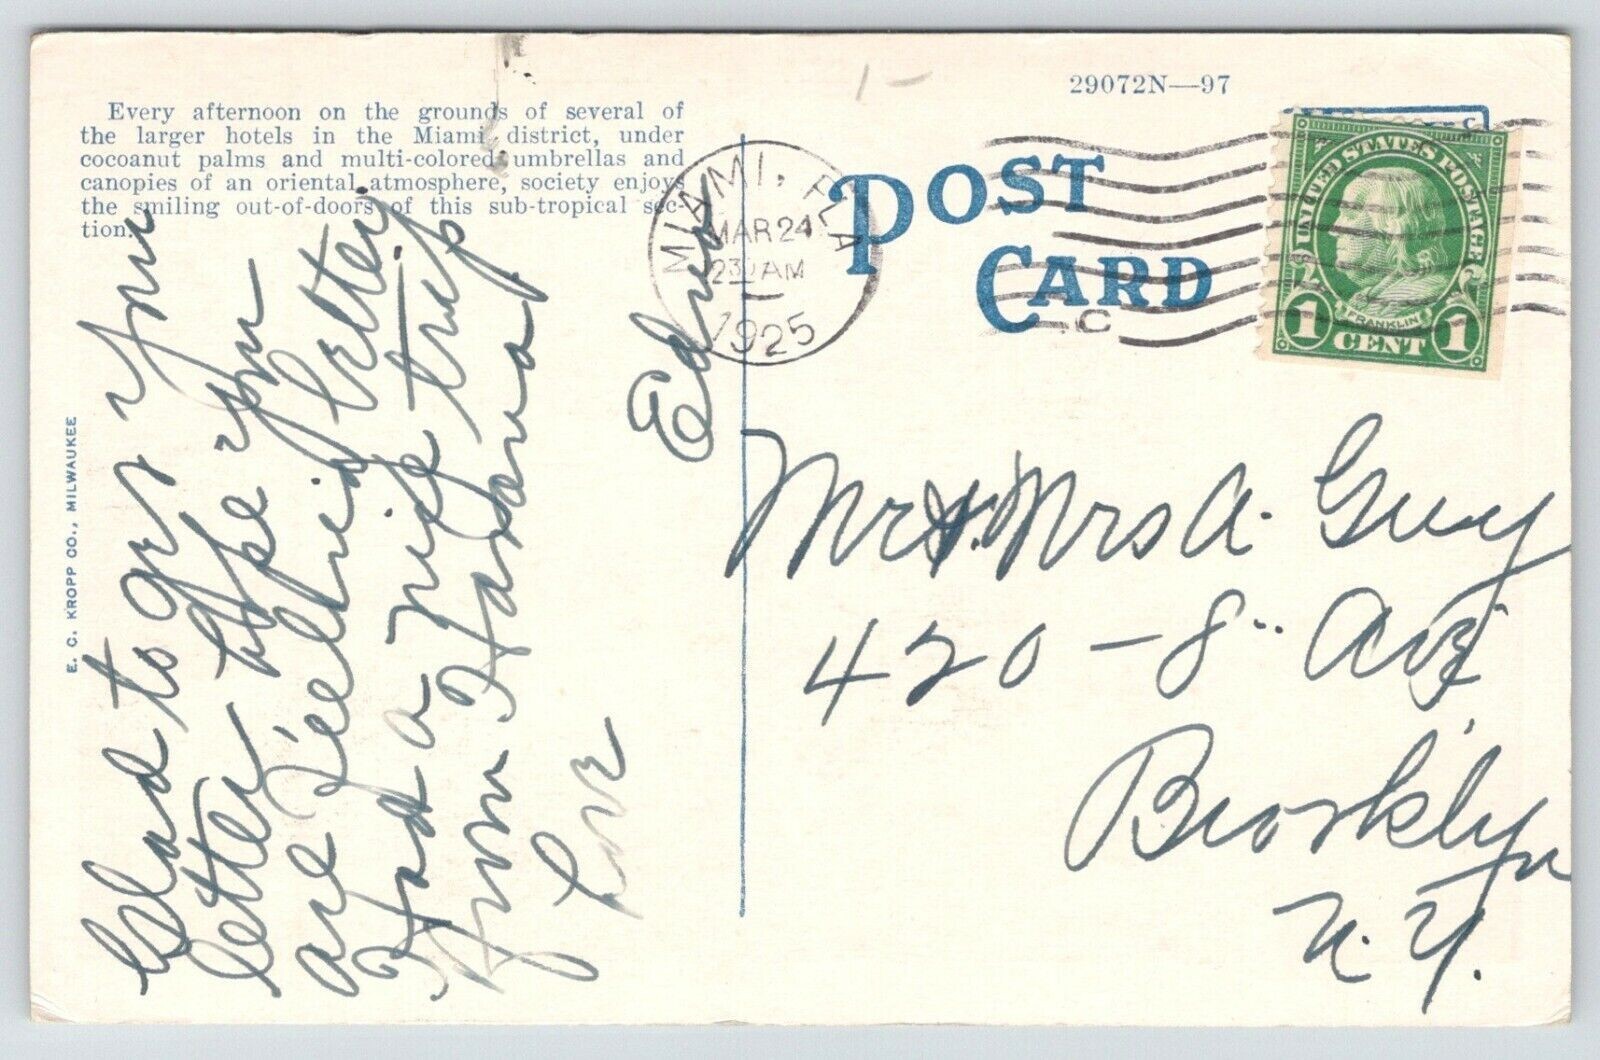 Every afternoon on the grounds of several of
the larger hotels in the Miami district, under
cocoanut palms and multi-colored umbrellas and
canopies of an oriental atmosphere, society enjoys
the smiling out-of-doors of this sub-tropical sec-
tion.
E. C. KROPP CO., MILWAUKEE
Glad to get your
letter hope you
are feeling better
Had a nice trip
from Havana.
Love
Edna
29072N—97
POST
CARD
MIAMI, FLA
MAR 24
230 AM
1925
C
UNITED STATES POSTAGE
FRANKLIN
1 CENT 1
Mr & Mrs A. Guy
420-8" Ave
Brooklyn
N.Y.